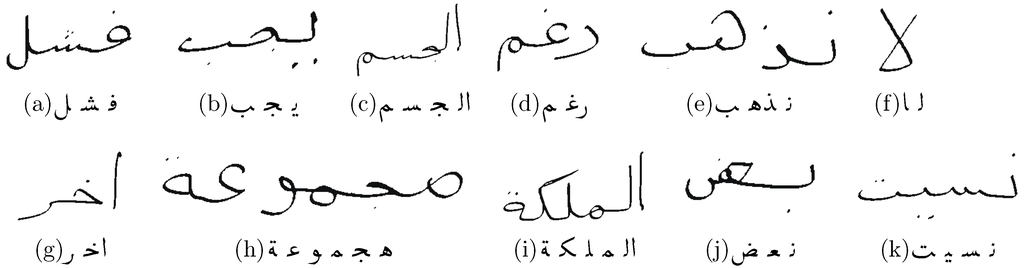 فشل يجب الجسم رغم نذهب لا
(a) ف ش ل (b) ي ج ب (c) ا ل ج س م (d) ر غ م (e) ن ذ ه ب (f) ل ا
اخر مجموعة الملكة بعض نسيت
(g) ا خ ر (h) ه ج م و ع ة (i) ا ل م ل ك ة (j) ن ع ض (k) ن س ي ت